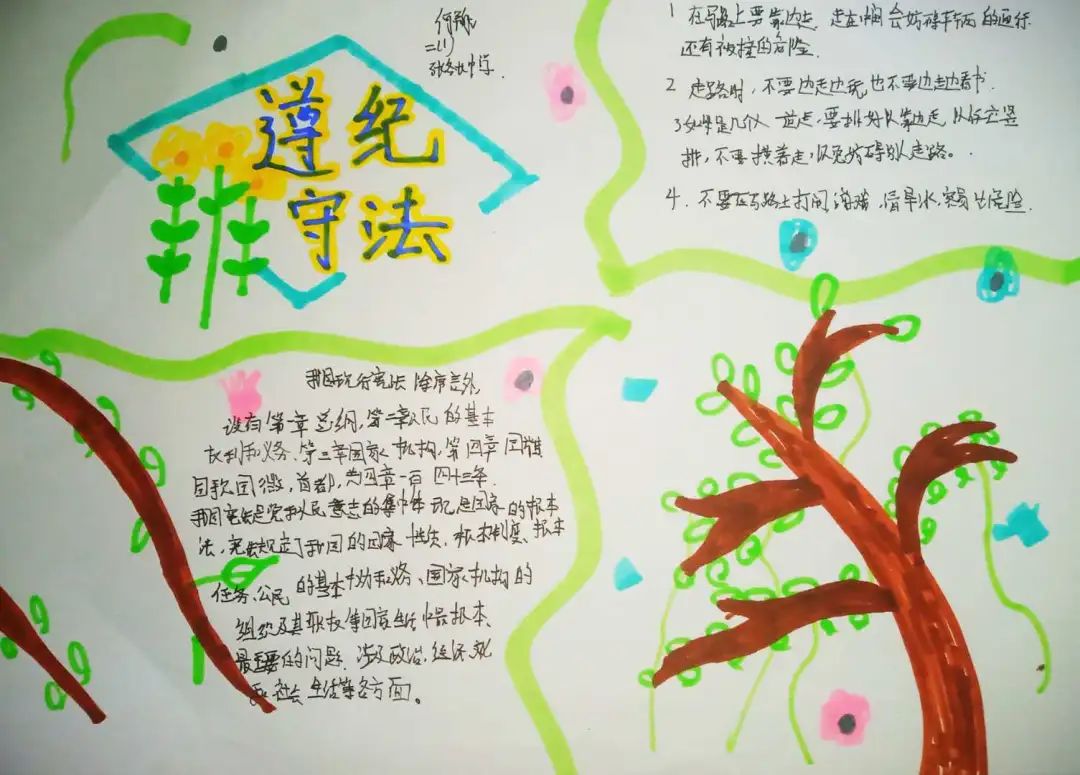 遵纪
守法
二(1)
1 在马路上要靠边走 走在中间会妨碍车辆的通行
还有被撞的危险.
2 走路时,不要边走边玩也不要边走边看书.
3如果是几个人一起走,要排好队靠边走
排,不要横着走,以免妨碍别人走路。
4.不要在马路上打闹
我国现行宪法除序言外
设有第一章总纲,第二章公民的基本
权利和义务、第三章国家机构,第四章国旗
国歌国徽,首都,为四章一百四十三条.
我国宪法是党和人民意志的集中体现是国家的根本
法,宪法规定了我国的国家性质、根本制度、根本
任务、公民的基本权利和义务、国家机构的
组织及其职权等国家生活中最根本、
最重要的问题.涉及政治,经济文化
和社会生活等各方面。